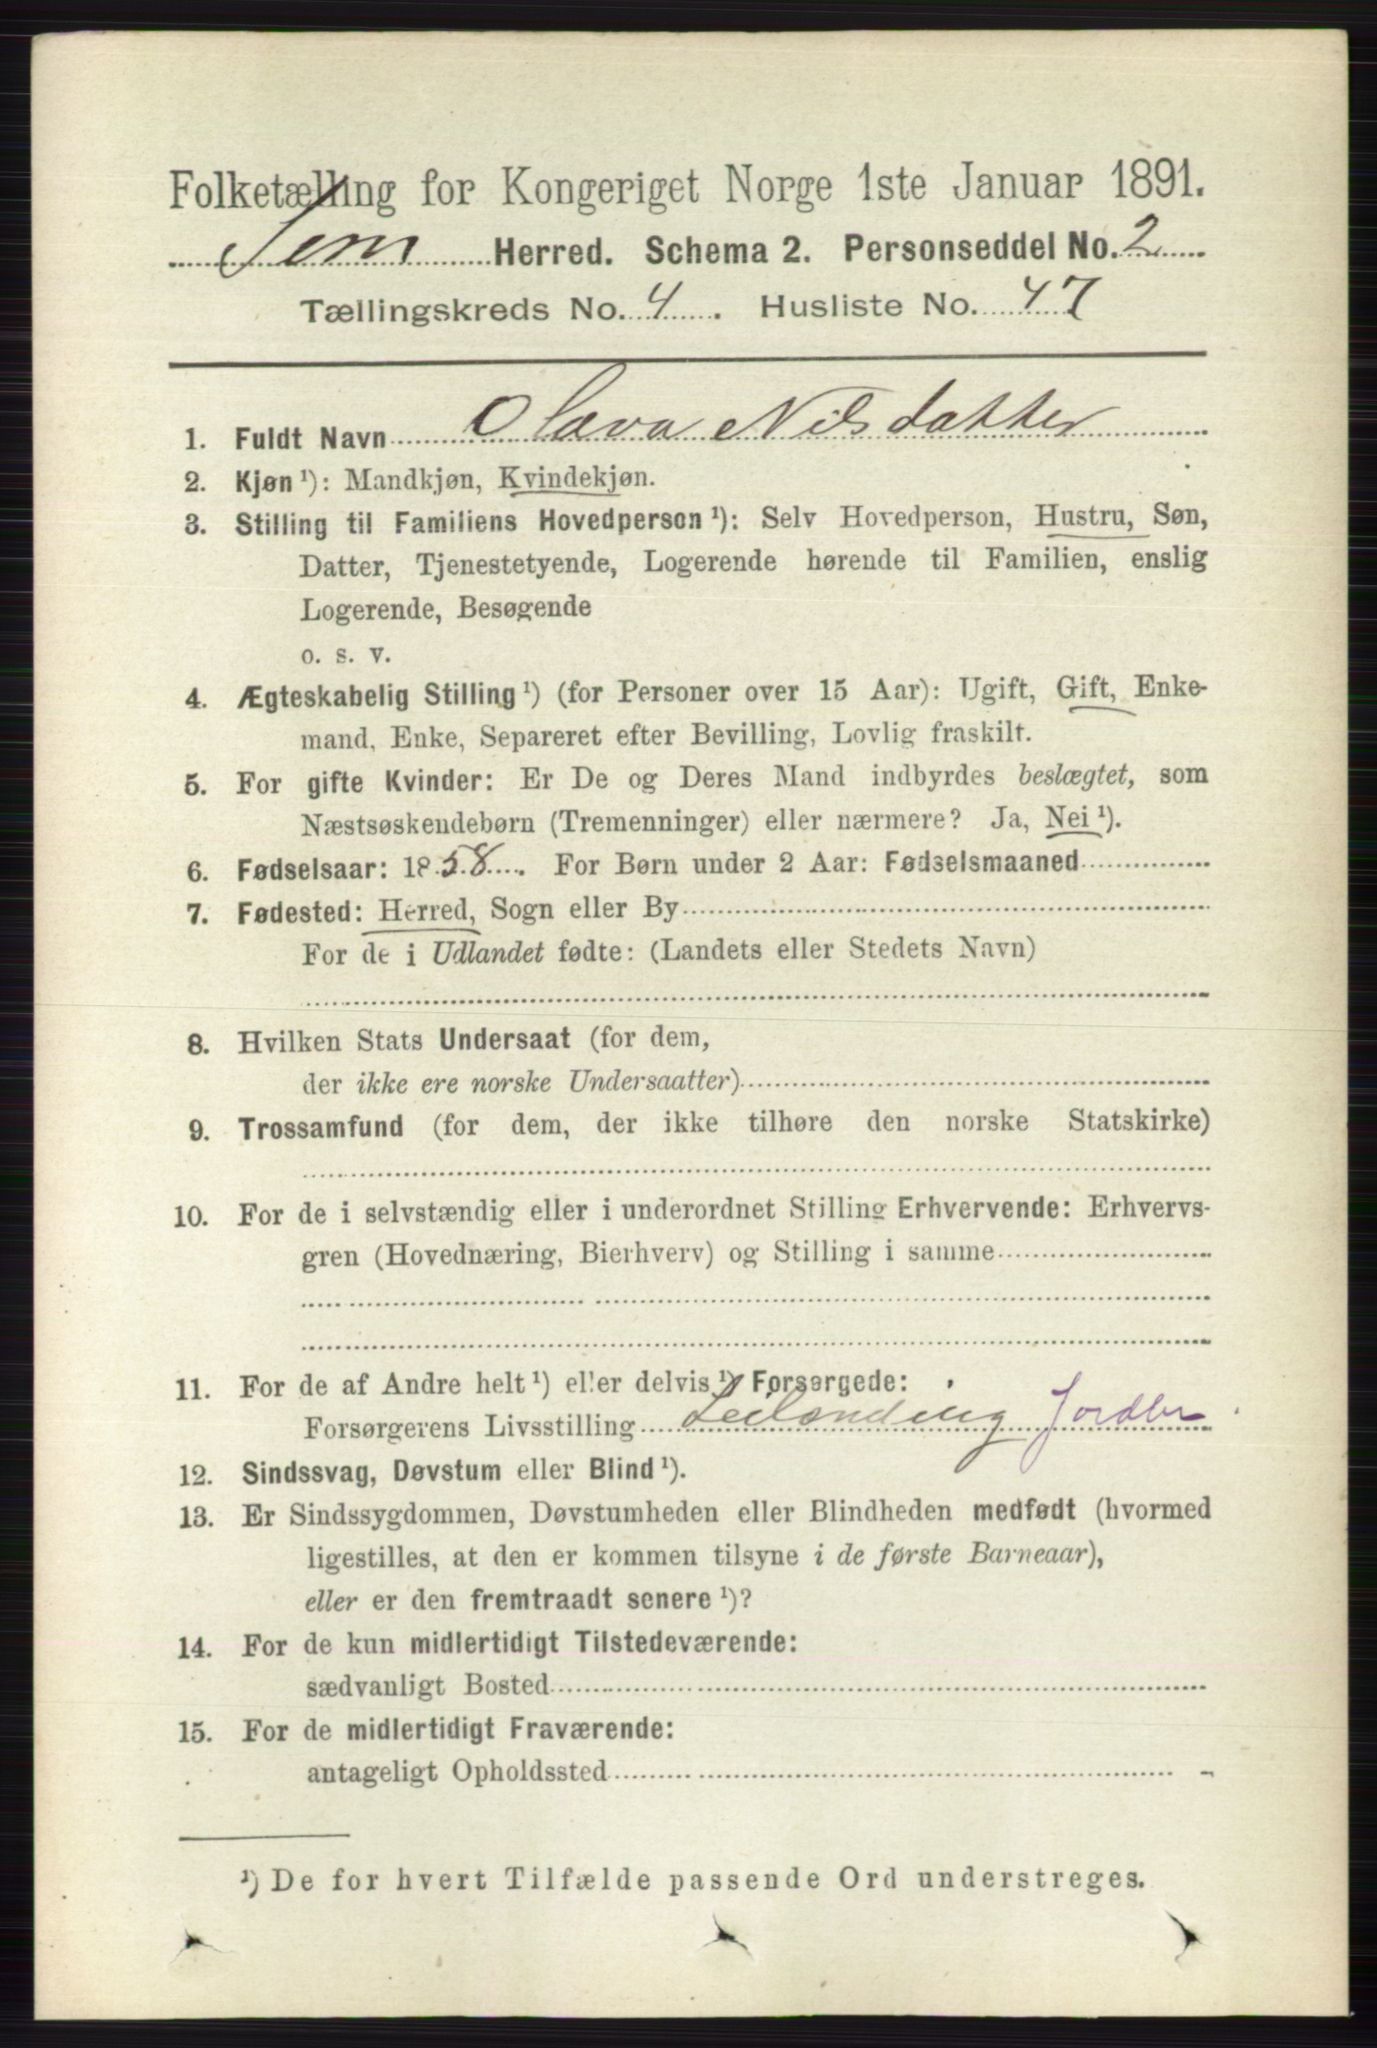 Folketælling for Kongeriget Norge 1ste Januar 1891.
Sem Herred. Schema 2. Personseddel No. 2
Tællingskreds No. 4. Husliste No. 47
1. Fuldt Navn Olava Nilsdatter
2. Kjøn¹): Mandkjøn, Kvindekjøn.
3. Stilling til Familiens Hovedperson¹): Selv Hovedperson, Hustru, Søn,
Datter, Tjenestetyende, Logerende hørende til Familien, enslig
Logerende, Besøgende
o. s. v.
4. Ægteskabelig Stilling¹) (for Personer over 15 Aar): Ugift, Gift, Enke-
mand, Enke, Separeret efter Bevilling, Lovlig fraskilt.
5. For gifte Kvinder: Er De og Deres Mand indbyrdes beslægtet, som
Næstsøskendebørn (Tremenninger) eller nærmere? Ja, Nei¹).
6. Fødselsaar: 1858. For Børn under 2 Aar: Fødselsmaaned
7. Fødested: Herred, Sogn eller By
For de i Udlandet fødte: (Landets eller Stedets Navn)
8. Hvilken Stats Undersaat (for dem,
der ikke ere norske Undersaatter)
9. Trossamfund (for dem, der ikke tilhøre den norske Statskirke)
10. For de i selvstændig eller i underordnet Stilling Erhvervende: Erhvervs-
gren (Hovednæring, Bierhverv) og Stilling i samme
11. For de af Andre helt¹) eller delvis¹) Forsørgede:
Forsørgerens Livsstilling Leilænding Jordbr
12. Sindssvag, Døvstum eller Blind¹).
13. Er Sindssygdommen, Døvstumheden eller Blindheden medfødt (hvormed
ligestilles, at den er kommen tilsyne i de første Barneaar),
eller er den fremtraadt senere¹)?
14. For de kun midlertidigt Tilstedeværende:
sædvanligt Bosted
15. For de midlertidigt Fraværende:
antageligt Opholdssted
¹) De for hvert Tilfælde passende Ord understreges.